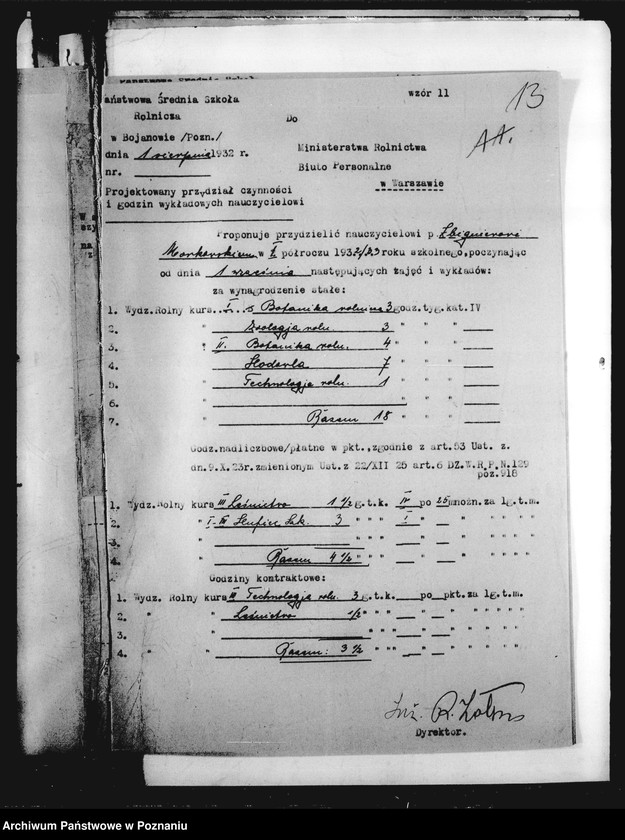 aństwowa Średnia Szkoła
Rolnicza
w Bojanowie /Pozn./
dnia 1 sierpnia 1932 r.
nr.
wzór 11
13
AA.
Do
Ministerstwa Rolnictwa
Biuro Personalne
w Warszawie
Projektowany przydział czynności
i godzin wykładowych nauczycielowi
Proponuje przydzielić nauczycielowi p. Zbigniewowi
w I półroczu 1932/33 roku szkolnego, poczynając
od dnia 1 września następujących zajęć i wykładów:
za wynagrodzenie stałe:
1. Wydz.Rolny kurs..I.. Botanika rolnicza 3 godz.tyg.kat.IV
2. " Zoologja roln. 3 " "
3. " II. Botanika roln. 4 " "
4. " Hodowla 7 " "
5. " Technologja roln. 1 " "
6. " " "
7. " Razem 18 " "
Godz.nadliczbowe/płatne w pkt., zgodnie z art.53 Ust. z.
dn.9.X.23r.zmienionym Ust.z 22/XII 25 art.6 DZ.W.R.P.N.129
poz.918
1. Wydz.Rolny kurs III Leśnictwo 1 1/2 g.t.k. IV po 25 mnożn.za 1g.t.m.
2. " I-III 3 " " " " " " " "
3. " " " " " " " " "
4. " Razem 4 1/2 " " " " " " " "
Godziny kontraktowe:
1. Wydz. Rolny kurs III Technologja roln. 3 g.t.k. po pkt.za 1g.t.m.
2. " " Leśnictwo 1/2 " " " " " " " "
3. " " " " " " " " " "
4. " " Razem: 3 1/2 " " " " " " " "
Inż.
Dyrektor.
Archiwum Państwowe w Poznaniu